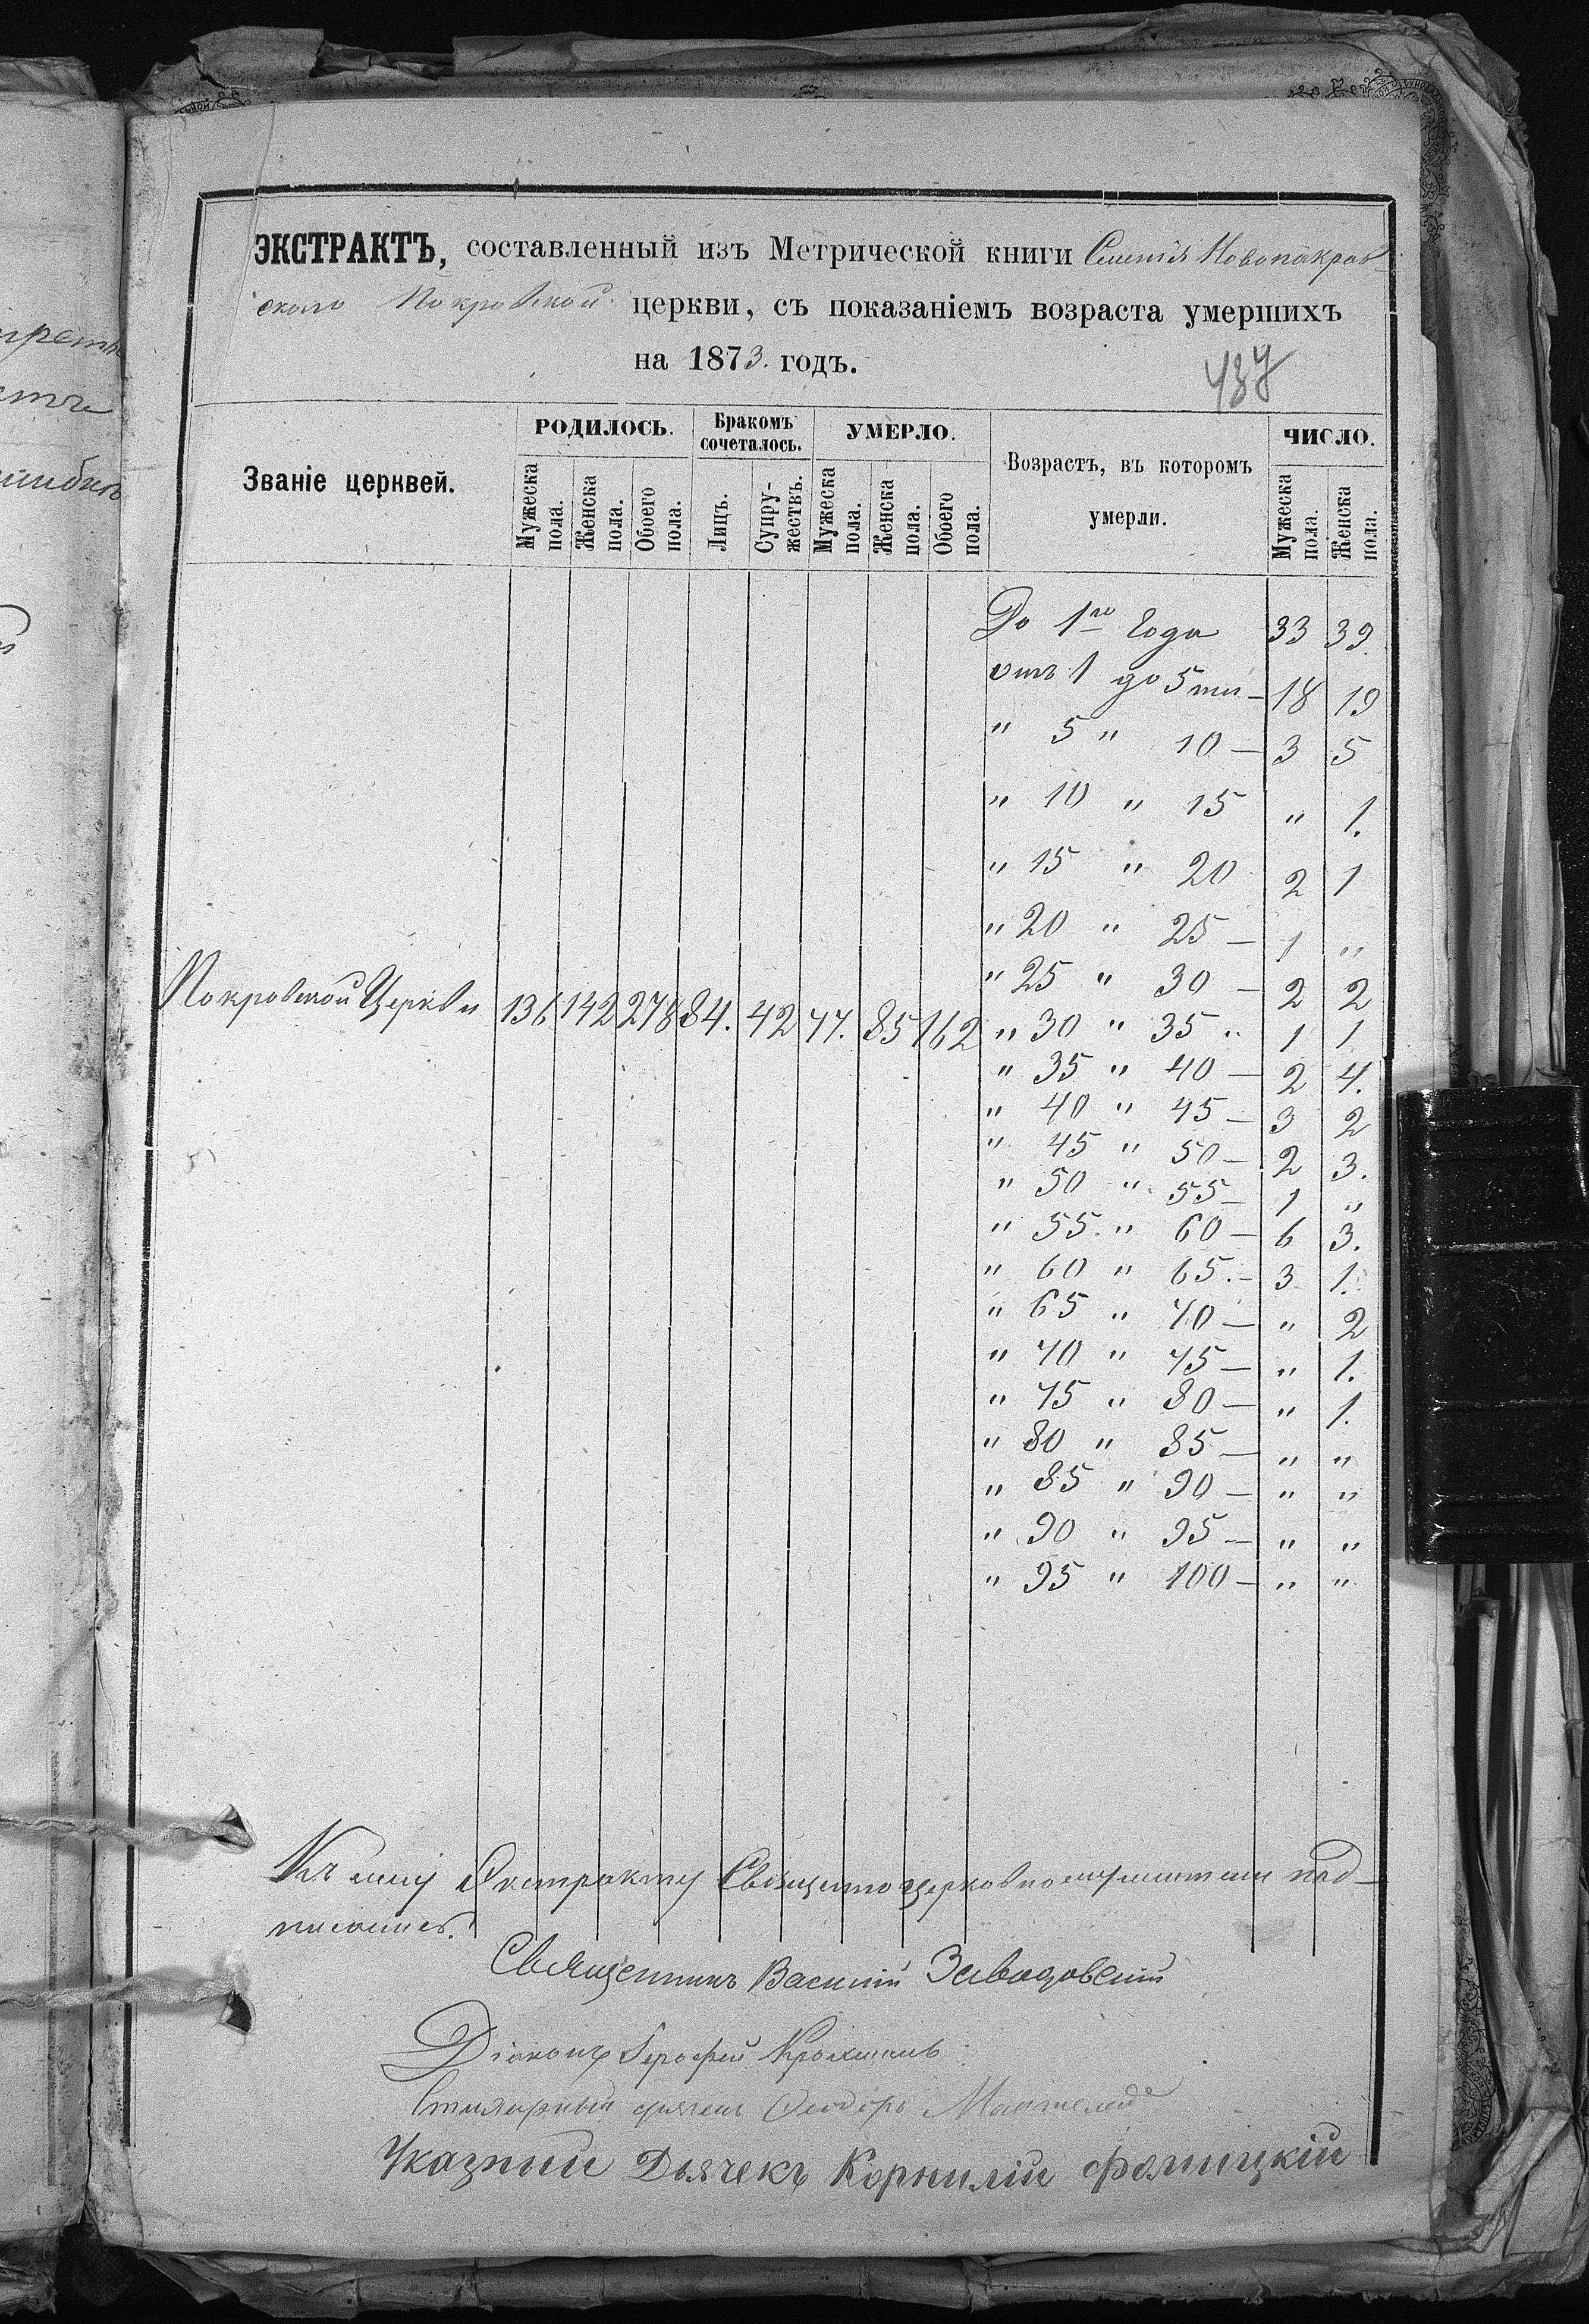 ЭКСТРАКТЪ, составленный изъ Метрической книги Селенія Новопокров-
скаго Покровской церкви, съ показаніемъ возраста умершихъ
на 1873. годъ.
437
Званіе церквей.
РОДИЛОСЬ.
Мужеска пола.
Женска пола.
Обоего пола.
Бракомъ сочеталось.
Лицъ.
Супру-жествъ.
УМЕРЛО.
Мужеска пола.
Женска пола.
Обоего пола.
Возрастъ, въ которомъ
умерли.
ЧИСЛО.
Мужеска пола.
Женска пола.
До 1го года 33 39.
отъ 1 до 5ти – 18 19
" 5 " 10 – 3 5
" 10 " 15 " 1.
" 15 " 20 2 1
" 20 " 25 – 1 "
" 25 " 30 – 2 2
Покровской Церкви 136 142 278 84. 42 77. 85 162 " 30 " 35 " 1 1
" 35 " 40 – 2 4.
" 40 " 45 – 3 2
" 45 " 50 – 2 3.
" 50 " 55 – 1 "
" 55. " 60 – 6 3.
" 60 " 65. – 3 1.
" 65 " 70 – " 2
" 70 " 75 – " 1.
" 75 " 80 – " 1.
" 80 " 85 – " "
" 85 " 90 – " "
" 90 " 95 – " "
" 95 " 100 – " "
Къ сему Экстракту Священноцерковнослужители под-
писались.
Священникъ Василій Заводовскій
Діаконъ Іерофей
дьячекъ Ѳеодоръ
Указный Дьячекъ Корнилій Фолицкій